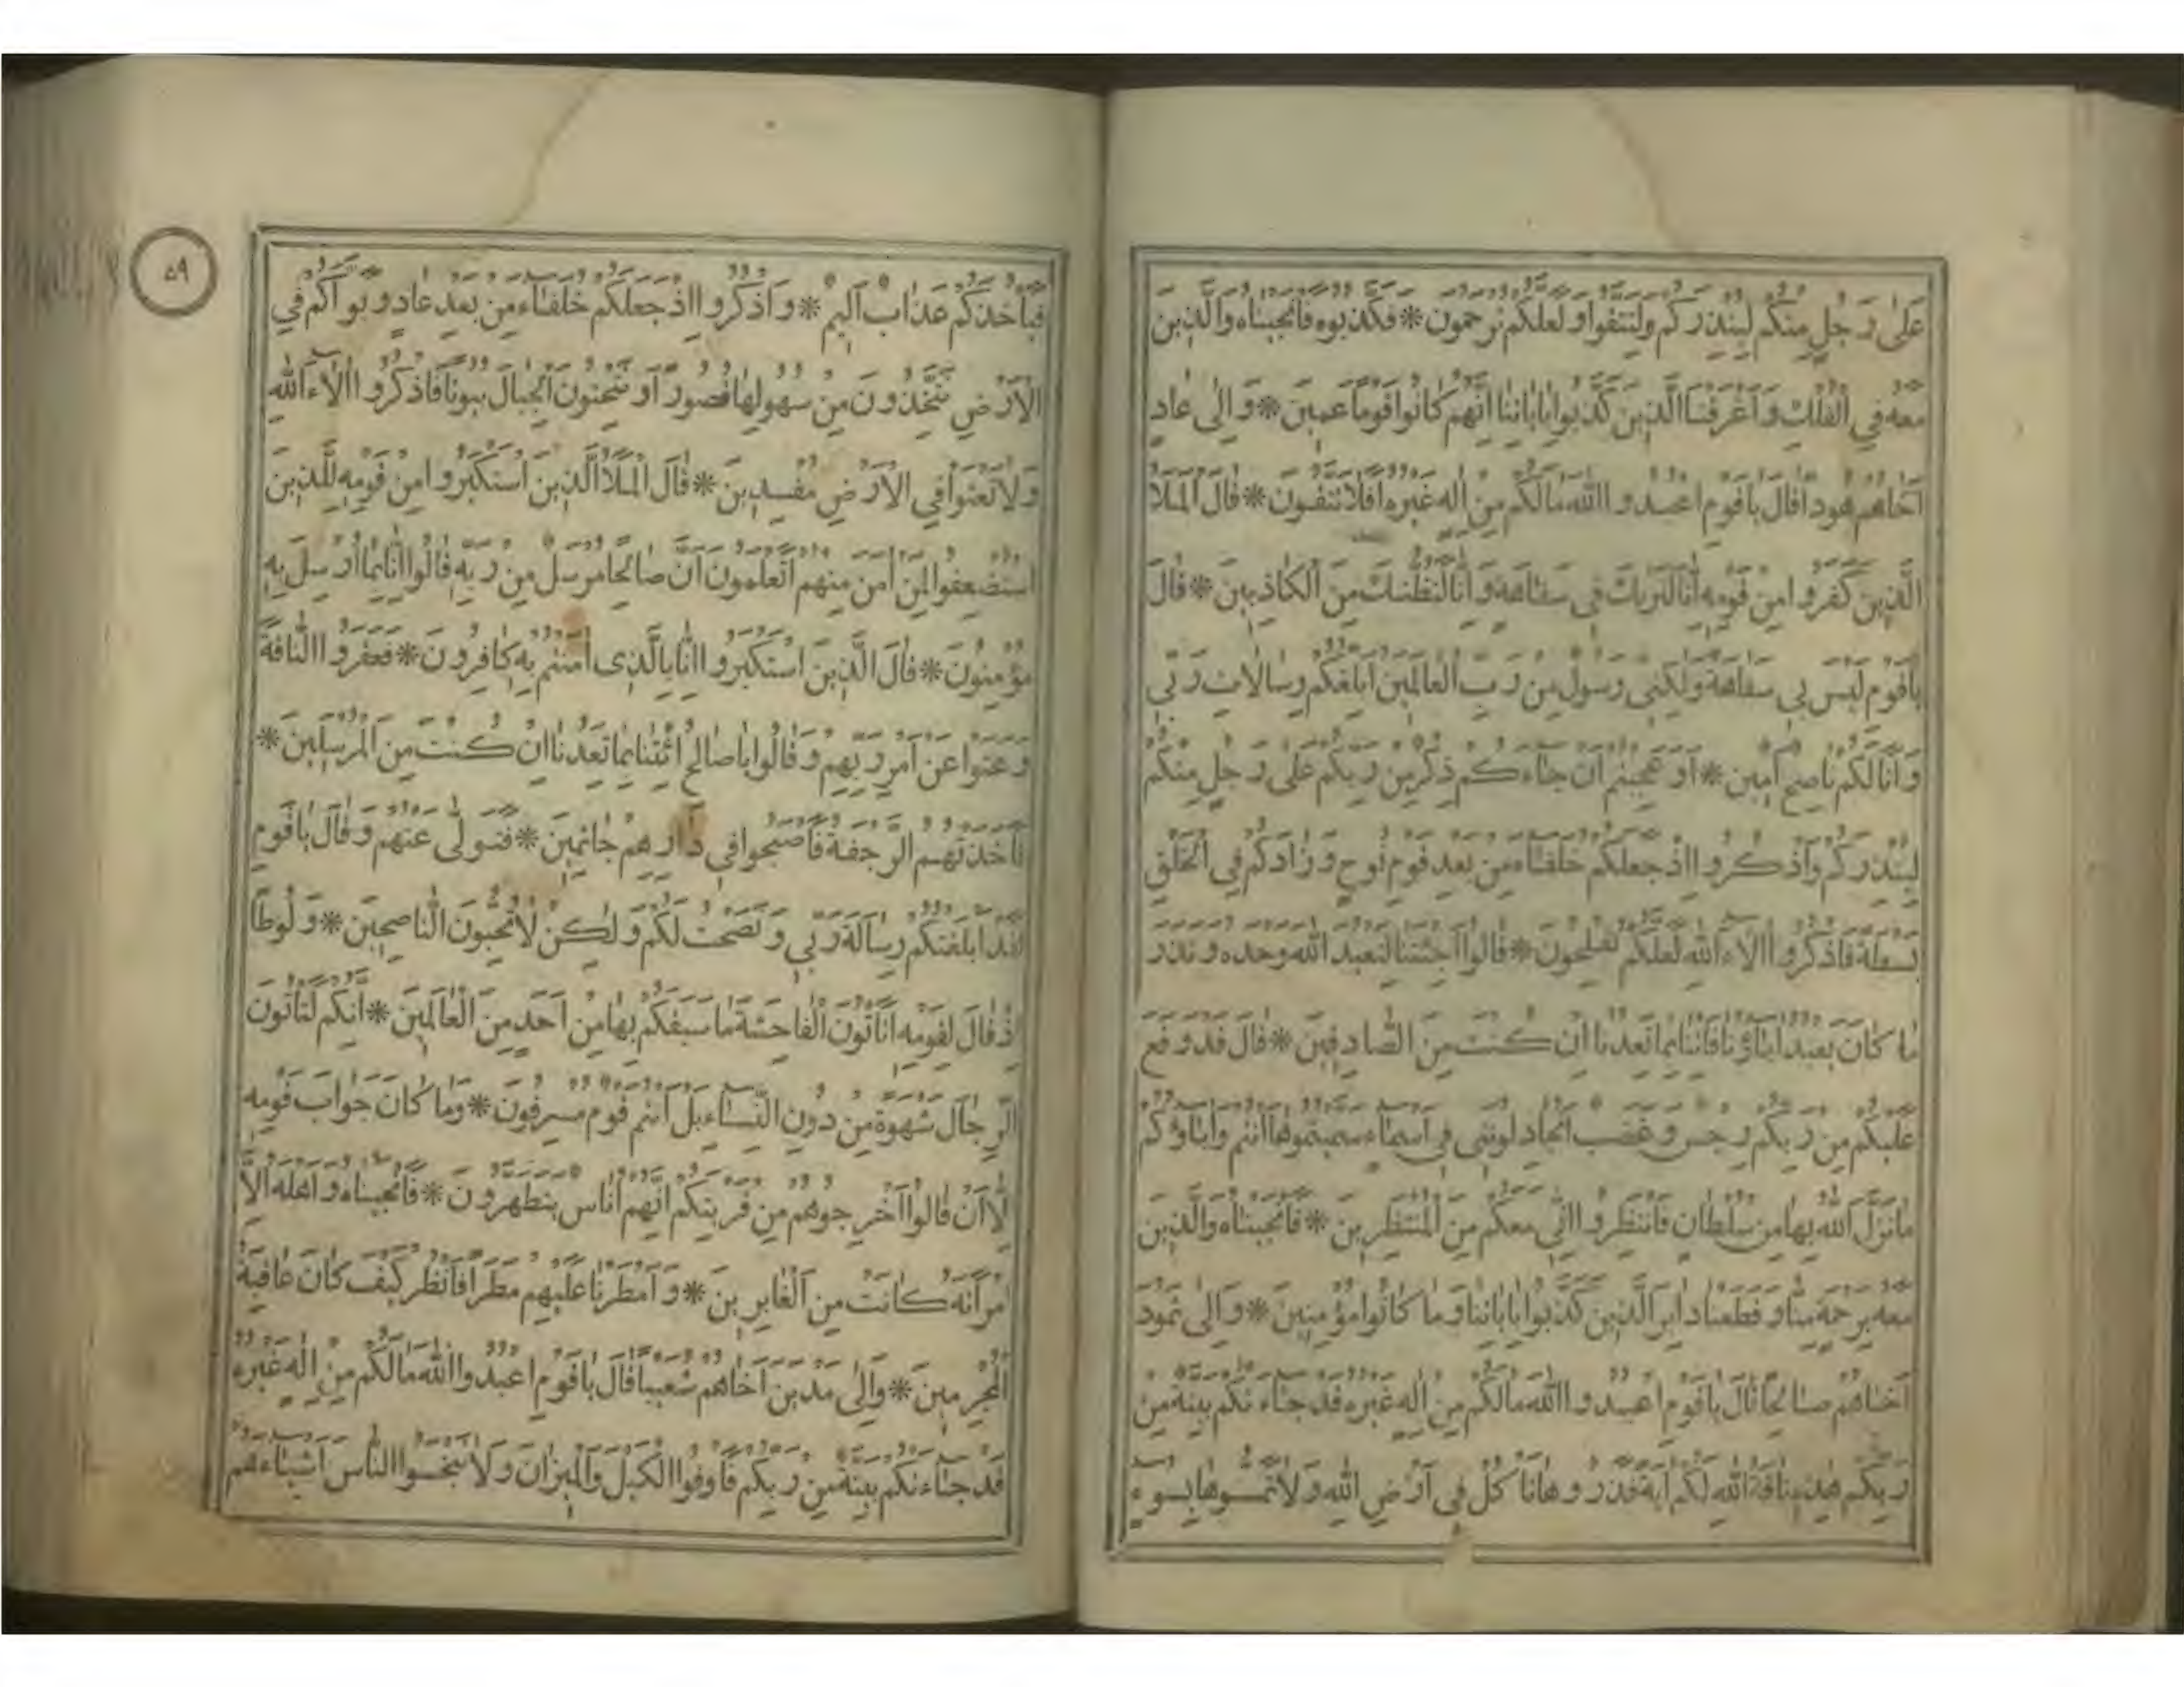 عَلٰى رَجُلٍ مِنْكُمْ لِيُنْذِرَكُمْ وَلِتَتَّقُوا وَلَعَلَّكُمْ تُرْحَمُونَ * فَكَذَّبُوهُ فَاَنْجَيْنَاهُ وَالَّذِينَ
مَعَهُ فِي الْفُلْكِ وَاَغْرَقْنَا الَّذِينَ كَذَّبُوا بِاٰيَاتِنَا اِنَّهُمْ كَانُوا قَوْمًا عَمِينَ * وَاِلٰى عَادٍ
اَخَاهُمْ هُودًا قَالَ يَاقَوْمِ اعْبُدُوا اللّٰهَ مَالَكُمْ مِنْ اِلٰهٍ غَيْرُهُ اَفَلَا تَتَّقُونَ * قَالَ الْمَلَأُ
الَّذِينَ كَفَرُوا مِنْ قَوْمِهِ اِنَّا لَنَرٰيكَ فِي سَفَاهَةٍ وَاِنَّا لَنَظُنُّكَ مِنَ الْكَاذِبِينَ * قَالَ
يَاقَوْمِ لَيْسَ بِي سَفَاهَةٌ وَلٰكِنِّي رَسُولٌ مِنْ رَبِّ الْعَالَمِينَ اُبَلِّغُكُمْ رِسَالَاتِ رَبِّي
وَاَنَا لَكُمْ نَاصِحٌ اَمِينٌ * اَوَعَجِبْتُمْ اَنْ جَاءَكُمْ ذِكْرٌ مِنْ رَبِّكُمْ عَلٰى رَجُلٍ مِنْكُمْ
لِيُنْذِرَكُمْ وَاذْكُرُوا اِذْ جَعَلَكُمْ خُلَفَاءَ مِنْ بَعْدِ قَوْمِ نُوحٍ وَزَادَكُمْ فِي الْخَلْقِ
بَسْطَةً فَاذْكُرُوا اٰلَاءَ اللّٰهِ لَعَلَّكُمْ تُفْلِحُونَ * قَالُوا اَجِئْتَنَا لِنَعْبُدَ اللّٰهَ وَحْدَهُ وَنَذَرَ
مَا كَانَ يَعْبُدُ اٰبَاؤُنَا فَاْتِنَا بِمَا تَعِدُنَا اِنْ كُنْتَ مِنَ الصَّادِقِينَ * قَالَ قَدْ وَقَعَ
عَلَيْكُمْ مِنْ رَبِّكُمْ رِجْسٌ وَغَضَبٌ اَتُجَادِلُونَنِي فِي اَسْمَاءٍ سَمَّيْتُمُوهَا اَنْتُمْ وَاٰبَاؤُكُمْ
مَا نَزَّلَ اللّٰهُ بِهَا مِنْ سُلْطَانٍ فَانْتَظِرُوا اِنِّي مَعَكُمْ مِنَ الْمُنْتَظِرِينَ * فَاَنْجَيْنَاهُ وَالَّذِينَ
مَعَهُ بِرَحْمَةٍ مِنَّا وَقَطَعْنَا دَابِرَ الَّذِينَ كَذَّبُوا بِاٰيَاتِنَا وَمَا كَانُوا مُؤْمِنِينَ * وَاِلٰى ثَمُودَ
اَخَاهُمْ صَالِحًا قَالَ يَاقَوْمِ اعْبُدُوا اللّٰهَ مَالَكُمْ مِنْ اِلٰهٍ غَيْرُهُ قَدْ جَاءَتْكُمْ بَيِّنَةٌ مِنْ
رَبِّكُمْ هٰذِهِ نَاقَةُ اللّٰهِ لَكُمْ اٰيَةً فَذَرُوهَا تَاْكُلْ فِي اَرْضِ اللّٰهِ وَلَا تَمَسُّوهَا بِسُوءٍ
٥٩
فَيَاْخُذَكُمْ عَذَابٌ اَلِيمٌ * وَاذْكُرُوا اِذْ جَعَلَكُمْ خُلَفَاءَ مِنْ بَعْدِ عَادٍ وَبَوَّاَكُمْ فِي
الْاَرْضِ تَتَّخِذُونَ مِنْ سُهُولِهَا قُصُورًا وَتَنْحِتُونَ الْجِبَالَ بُيُوتًا فَاذْكُرُوا اٰلَاءَ اللّٰهِ
وَلَا تَعْثَوْا فِي الْاَرْضِ مُفْسِدِينَ * قَالَ الْمَلَأُ الَّذِينَ اسْتَكْبَرُوا مِنْ قَوْمِهِ لِلَّذِينَ
اسْتُضْعِفُوا لِمَنْ اٰمَنَ مِنْهُمْ اَتَعْلَمُونَ اَنَّ صَالِحًا مُرْسَلٌ مِنْ رَبِّهِ قَالُوا اِنَّا بِمَا اُرْسِلَ بِهِ
مُؤْمِنُونَ * قَالَ الَّذِينَ اسْتَكْبَرُوا اِنَّا بِالَّذِي اٰمَنْتُمْ بِهِ كَافِرُونَ * فَعَقَرُوا النَّاقَةَ
وَعَتَوْا عَنْ اَمْرِ رَبِّهِمْ وَقَالُوا يَاصَالِحُ ائْتِنَا بِمَا تَعِدُنَا اِنْ كُنْتَ مِنَ الْمُرْسَلِينَ *
فَاَخَذَتْهُمُ الرَّجْفَةُ فَاَصْبَحُوا فِي دَارِهِمْ جَاثِمِينَ * فَتَوَلّٰى عَنْهُمْ وَقَالَ يَاقَوْمِ
لَقَدْ اَبْلَغْتُكُمْ رِسَالَةَ رَبِّي وَنَصَحْتُ لَكُمْ وَلٰكِنْ لَا تُحِبُّونَ النَّاصِحِينَ * وَلُوطًا
اِذْ قَالَ لِقَوْمِهِ اَتَاْتُونَ الْفَاحِشَةَ مَا سَبَقَكُمْ بِهَا مِنْ اَحَدٍ مِنَ الْعَالَمِينَ * اِنَّكُمْ لَتَاْتُونَ
الرِّجَالَ شَهْوَةً مِنْ دُونِ النِّسَاءِ بَلْ اَنْتُمْ قَوْمٌ مُسْرِفُونَ * وَمَا كَانَ جَوَابَ قَوْمِهِ
اِلَّا اَنْ قَالُوا اَخْرِجُوهُمْ مِنْ قَرْيَتِكُمْ اِنَّهُمْ اُنَاسٌ يَتَطَهَّرُونَ * فَاَنْجَيْنَاهُ وَاَهْلَهُ اِلَّا
امْرَاَتَهُ كَانَتْ مِنَ الْغَابِرِينَ * وَاَمْطَرْنَا عَلَيْهِمْ مَطَرًا فَانْظُرْ كَيْفَ كَانَ عَاقِبَةُ
الْمُجْرِمِينَ * وَاِلٰى مَدْيَنَ اَخَاهُمْ شُعَيْبًا قَالَ يَاقَوْمِ اعْبُدُوا اللّٰهَ مَالَكُمْ مِنْ اِلٰهٍ غَيْرُهُ
قَدْ جَاءَتْكُمْ بَيِّنَةٌ مِنْ رَبِّكُمْ فَاَوْفُوا الْكَيْلَ وَالْمِيزَانَ وَلَا تَبْخَسُوا النَّاسَ اَشْيَاءَهُمْ